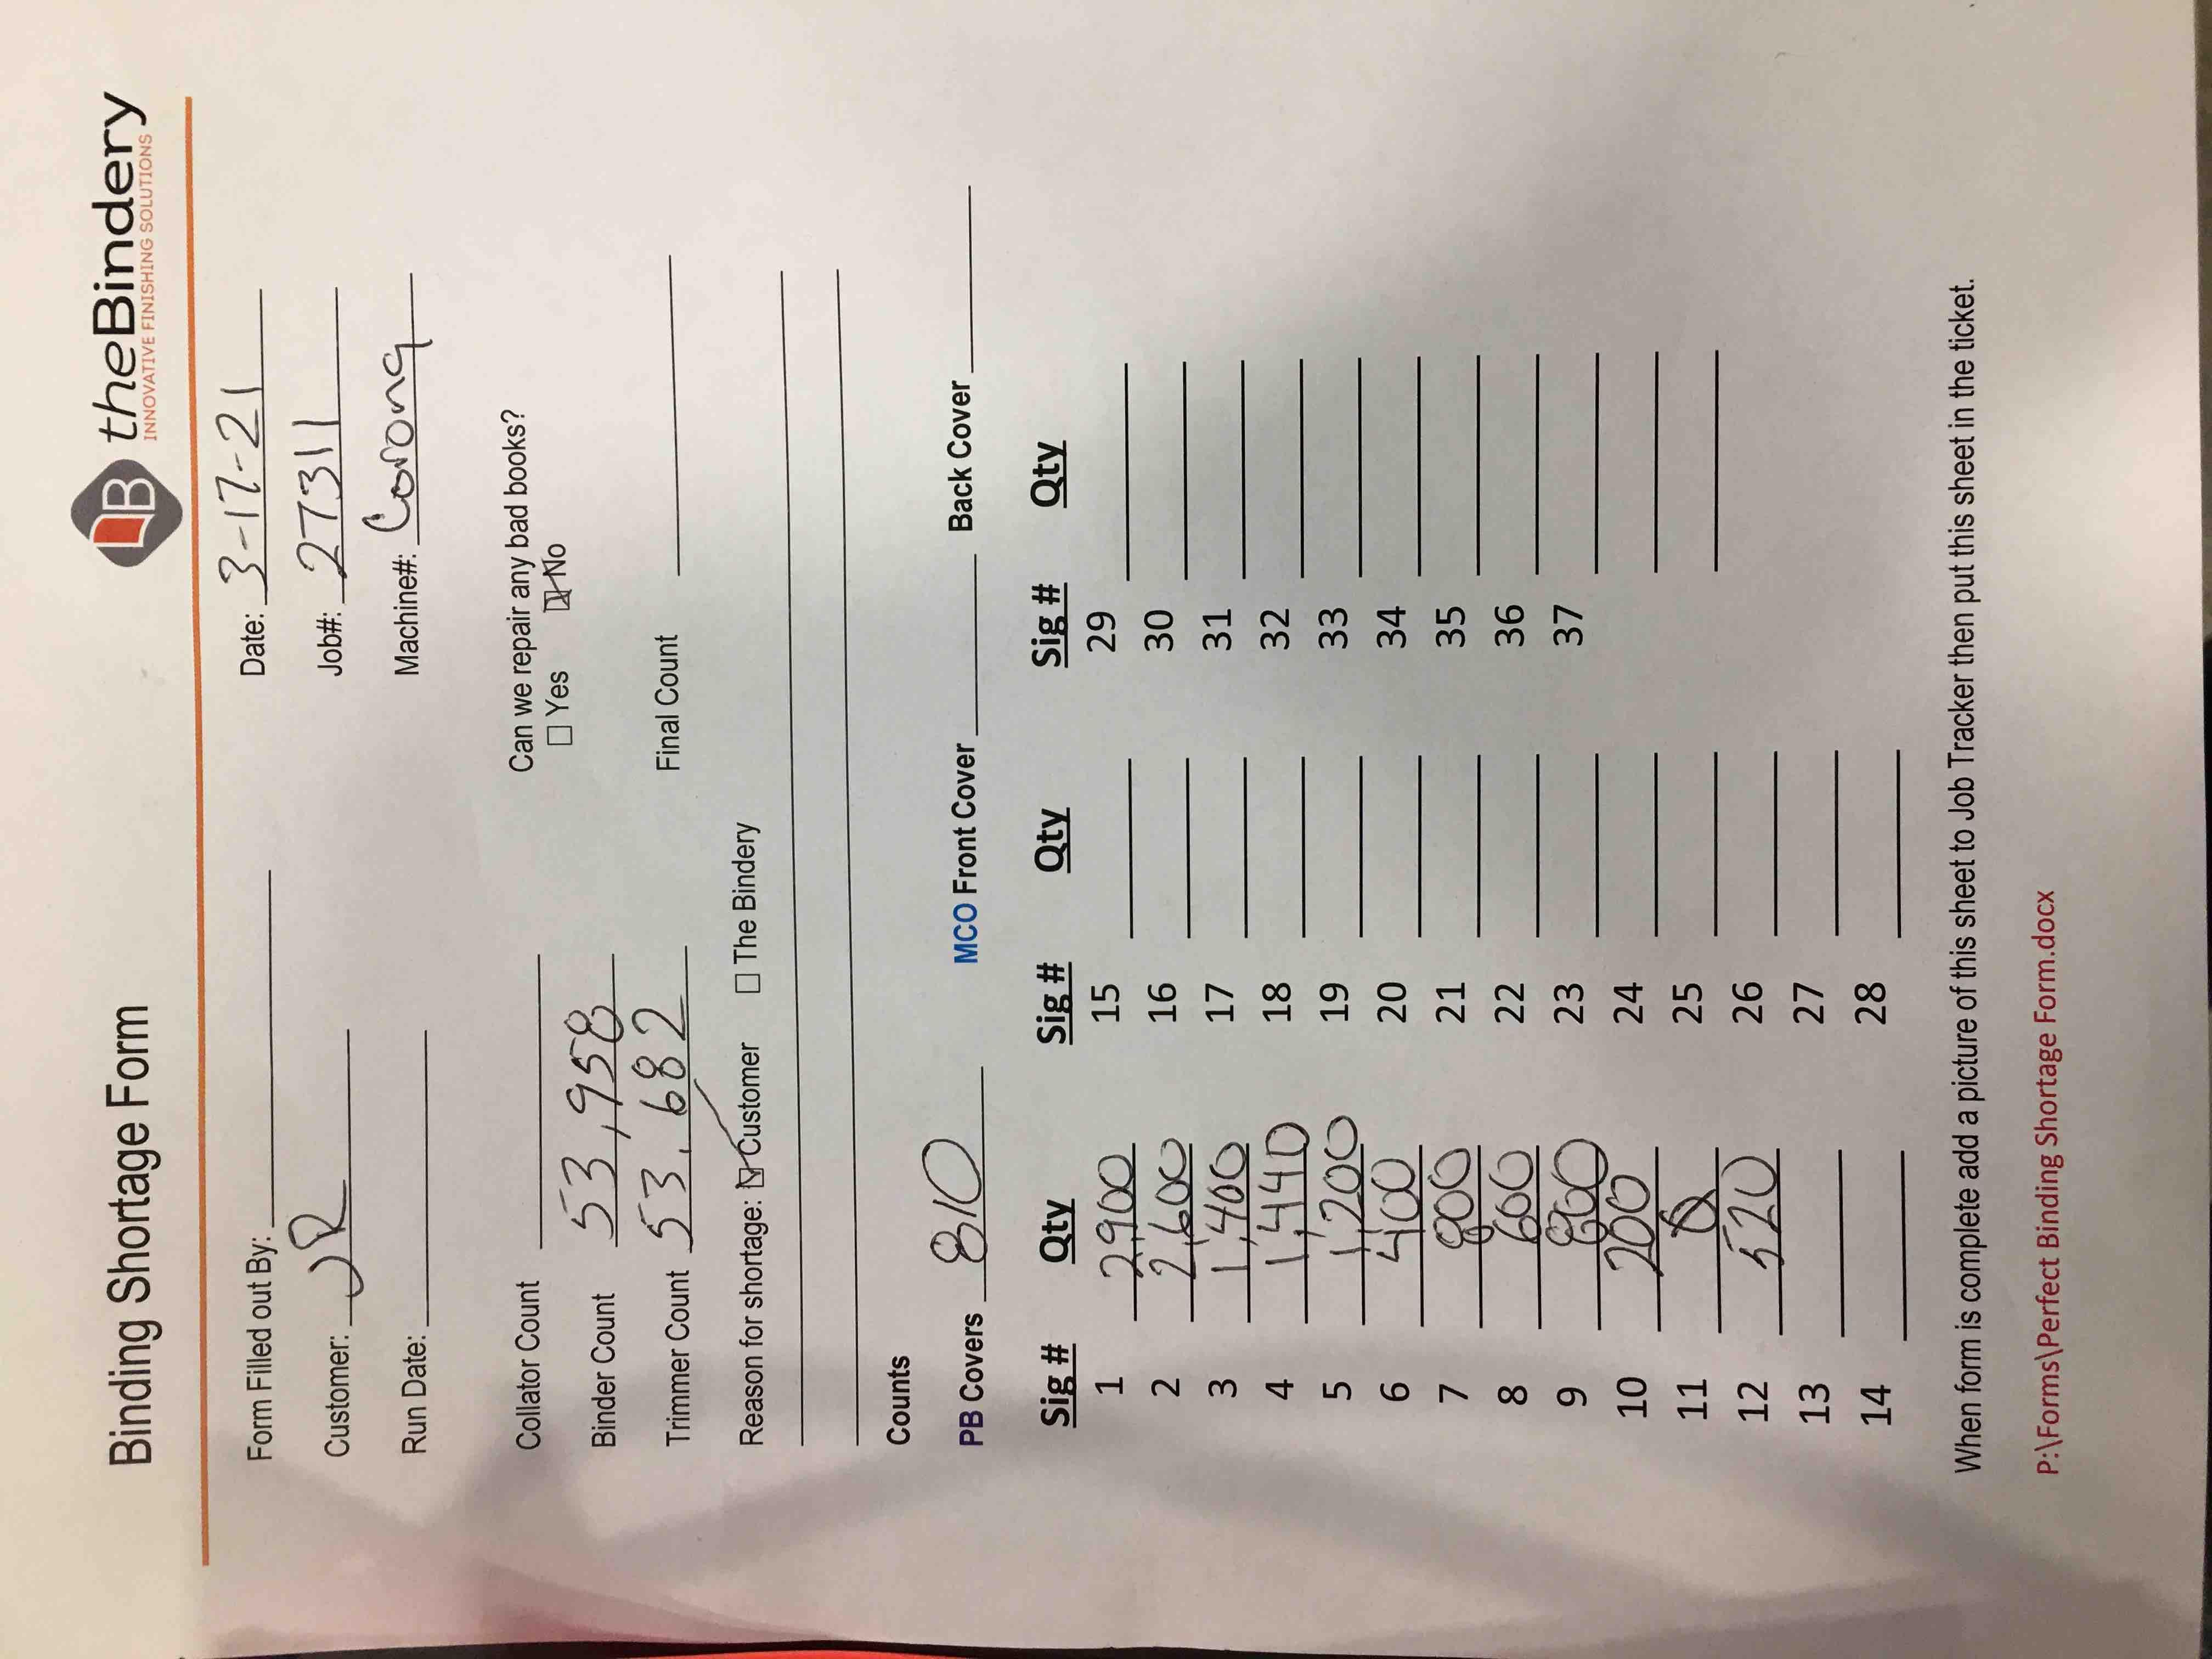 Binding Shortage Form
theBindery
INNOVATIVE FINISHING SOLUTIONS
Form Filled out By: Date: 3-17-21
Customer: JR Job#: 27311
Run Date: Machine#: Corona
Collator Count Can we repair any bad books?
Binder Count 53,958 ☐ Yes ☑ No
Trimmer Count 53,682 Final Count
Reason for shortage: ☑ Customer ☐ The Bindery
Counts
PB Covers 810 MCO Front Cover Back Cover
Sig # Qty Sig # Qty Sig # Qty
1 2,900 15 29
2 2,600 16 30
3 1,400 17 31
4 1,440 18 32
5 1,200 19 33
6 400 20 34
7 800 21 35
8 600 22 36
9 800 23 37
10 200 24
11 25
12 520 26
13 27
14 28
When form is complete add a picture of this sheet to Job Tracker then put this sheet in the ticket.
P:\Forms\Perfect Binding Shortage Form.docx